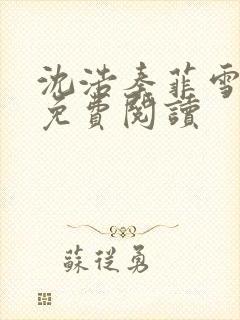 沈浩秦菲雪
免費閱讀
蘇從勇